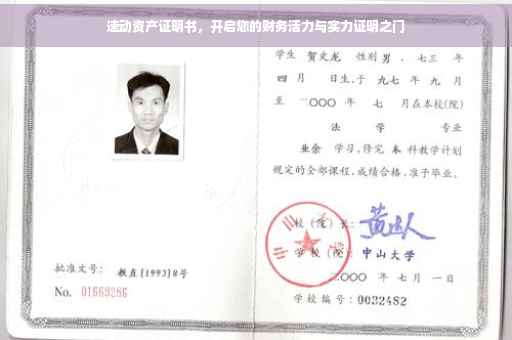 速动资产证明书，开启您的财务活力与实力证明之门
学生 贺文龙 性别 男，七三 年
四 月 日生，于 九七 年 九 月
至 二〇〇〇 年 七 月在本校(院)
法 学 专业
业余 学习，修完 本 科教学计划
规定的全部课程，成绩合格，准予毕业。
校(院)长：
学校(院)：中山大学
二〇〇〇 年 七 月 一 日
学校编号：0032482
批准文号：教直[1993]8号
No. 01669286